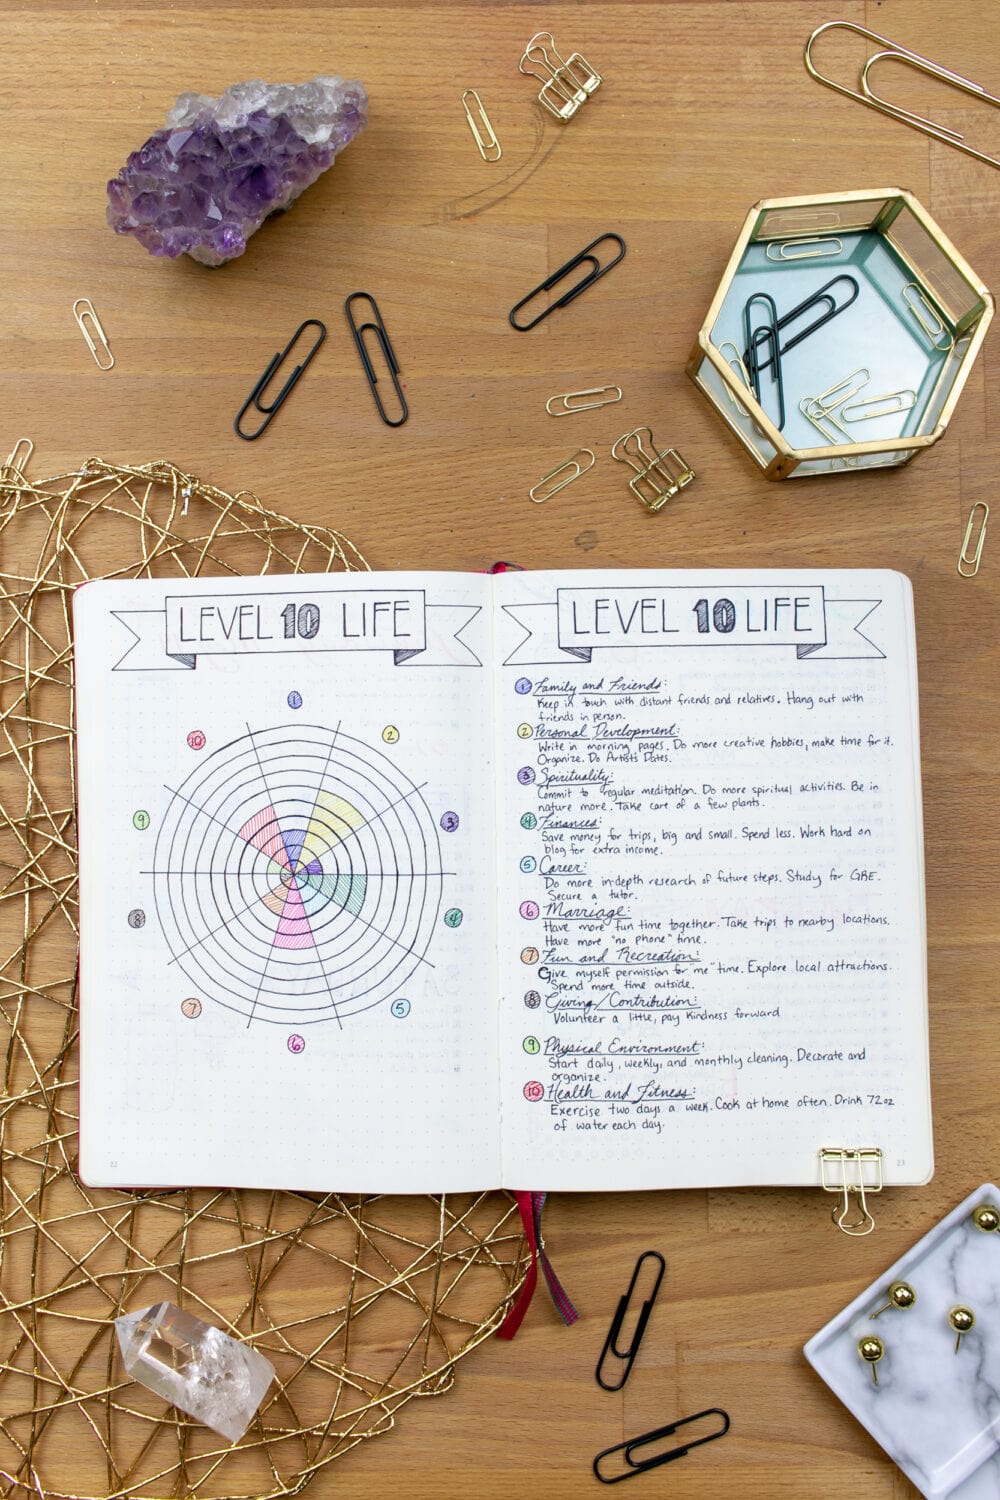 LEVEL 10 LIFE
1
2
3
4
5
6
7
8
9
10
22
LEVEL 10 LIFE
1 Family and Friends:
Keep in touch with distant friends and relatives. Hang out with
friends in person.
2 Personal Development:
Write in morning pages. Do more creative hobbies, make time for it.
Organize. Do Artists Dates.
3 Spirituality:
Commit to regular meditation. Do more spiritual activities. Be in
nature more. Take care of a few plants.
4 Finances:
Save money for trips, big and small. Spend less. Work hard on
blog for extra income.
5 Career:
Do more in-depth research of future steps. Study for GRE.
Secure a tutor.
6 Marriage:
Have more fun time together. Take trips to nearby locations.
Have more "no phone" time.
7 Fun and Recreation:
Give myself permission for "me" time. Explore local attractions.
Spend more time outside.
8 Giving/Contribution:
Volunteer a little, pay kindness forward
9 Physical Environment:
Start daily, weekly, and monthly cleaning. Decorate and
organize.
10 Health and Fitness:
Exercise two days a week. Cook at home often. Drink 72oz
of water each day.
23